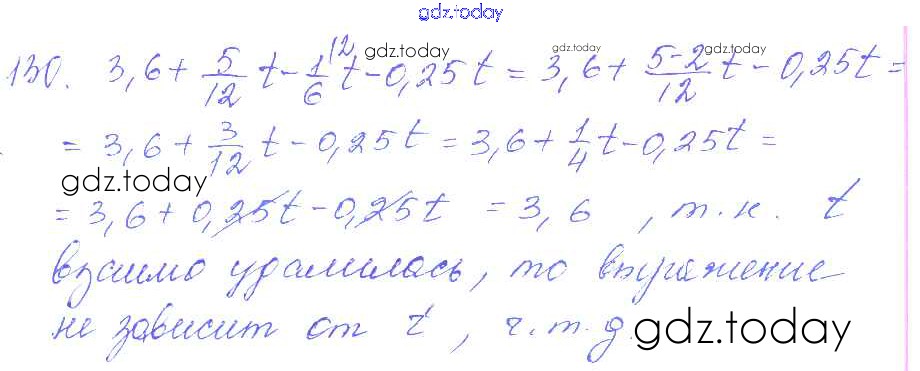 gdz.today
130. 3,6 + 5/12 t - 1/6 \2 t - 0,25 t = 3,6 + 5-2/12 t - 0,25 t =
gdz.today gdz.today gdz.today
= 3,6 + 3/12 t - 0,25 t = 3,6 + 1/4 t - 0,25 t =
gdz.today
= 3,6 + 0,25 t - 0,25 t = 3,6 , т.к. t
взаимо удалилась, то выражение
не зависит от t, ч.т.д.
gdz.today